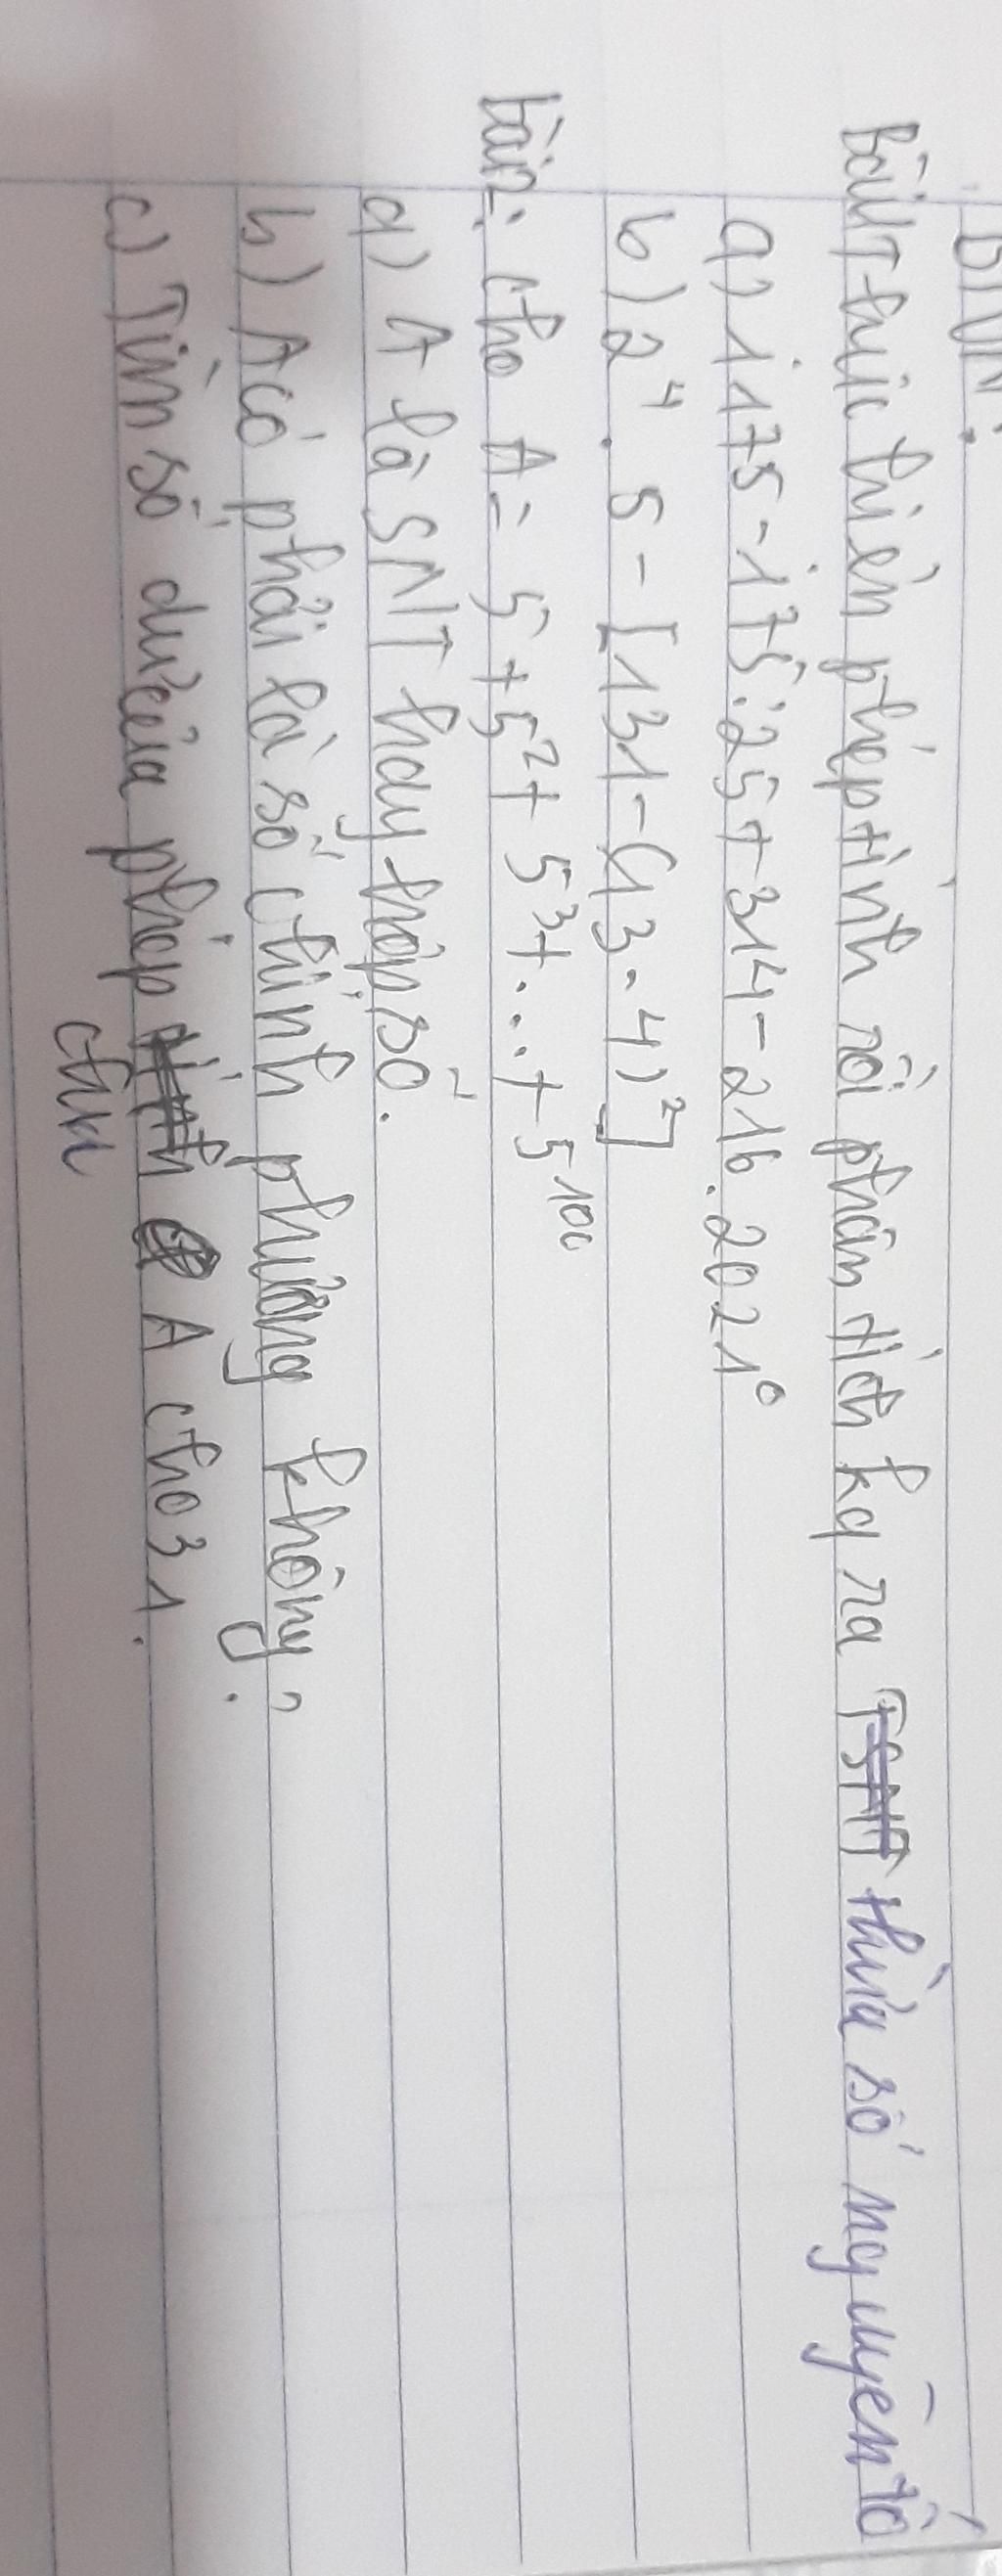 Bài 1 thức hiện phép tính rồi phân tích kq ra TSNT thừa số nguyên tố
a) 1175 - 175 : 25 + 314 - 216 . 2021⁰
b) 2⁴ . 5 - [131 - (13 - 4)²]
bài 2: cho A = 5 + 5² + 5³ + ... + 5¹⁰⁰
a) A là SNT hay hợp số.
b) A có phải là số chính phương không?
c) Tìm số dư của phép A cho 31.
chia